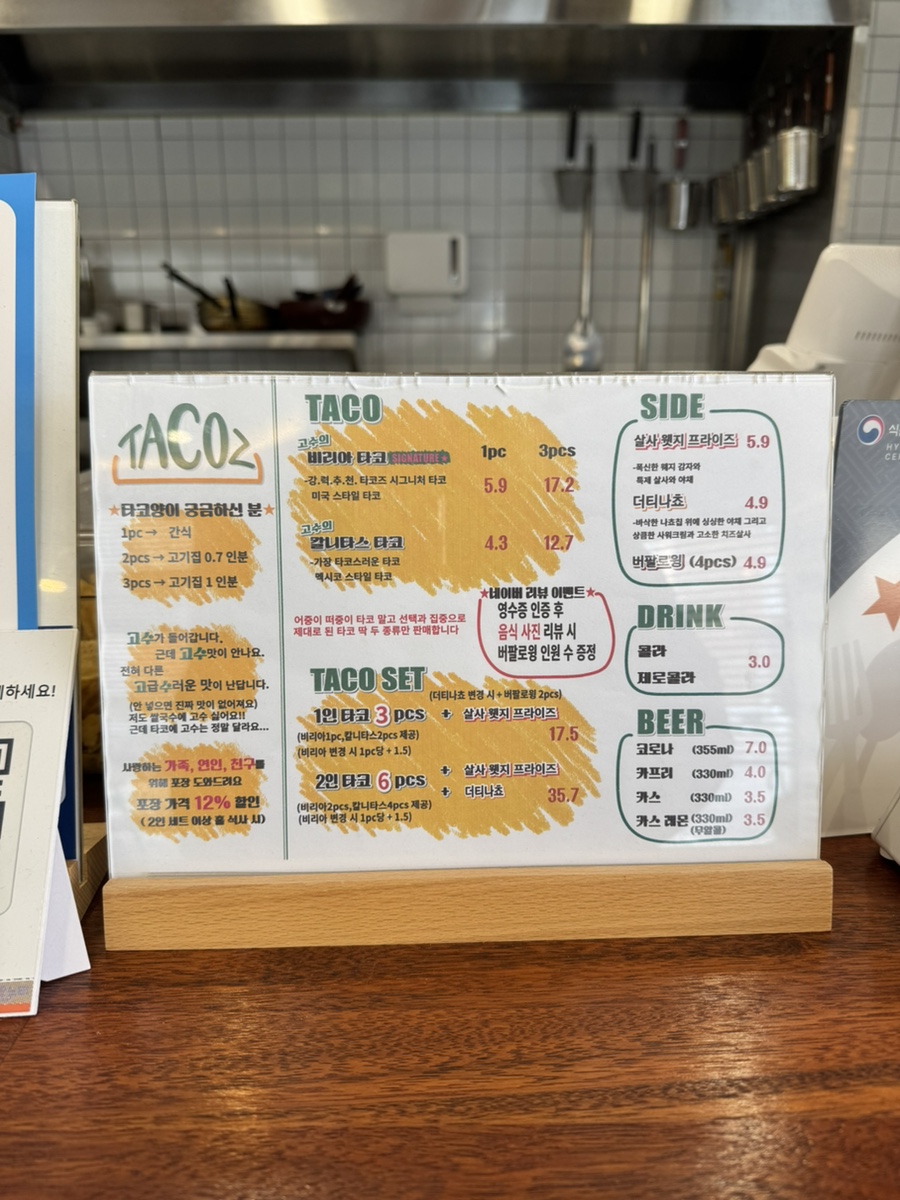 TACOZ
★타코양이 궁금하신 분★
1pc → 간식
2pcs → 고기집 0.7 인분
3pcs → 고기집 1 인분
고수가 들어갑니다.
근데 고수맛이 안나요.
전혀 다른
고급수러운 맛이 난답니다.
(안 넣으면 진짜 맛이 없어져요)
저도 쌀국수에 고수 싫어요!!
근데 타코에 고수는 정말 달라요...
사랑하는 가족, 연인, 친구를
위해 포장 도와드려요
포장 가격 12% 할인
( 2인 세트 이상 홀 식사 시)
TACO
고수의
비리아 타코 SIGNATURE ★ 1pc 3pcs
-강.력.추.천. 타코즈 시그니처 타코 5.9 17.2
미국 스타일 타코
고수의
칼니타스 타코 4.3 12.7
-가장 타코스러운 타코
멕시코 스타일 타코
어중이 떠중이 타코 말고 선택과 집중으로
제대로 된 타코 딱 두 종류만 판매합니다
★네이버 리뷰 이벤트★
영수증 인증 후
음식 사진 리뷰 시
버팔로윙 인원 수 증정
TACO SET
(더티나쵸 변경 시 + 버팔로윙 2pcs)
1인 타코 3 pcs + 살사 웻지 프라이즈
(비리아1pc,칼니타스2pcs 제공) 17.5
(비리아 변경 시 1pc당 + 1.5)
2인 타코 6 pcs + 살사 웻지 프라이즈
+ 더티나쵸 35.7
(비리아2pcs,칼니타스4pcs 제공)
(비리아 변경 시 1pc당 + 1.5)
SIDE
살사 웻지 프라이즈 5.9
-폭신한 웨지 감자와
특제 살사와 야채
더티나쵸 4.9
-바삭한 나쵸집 위에 싱싱한 야채 그리고
상큼한 사워크림과 고소한 치즈살사
버팔로윙 (4pcs) 4.9
DRINK
콜라
제로콜라 3.0
BEER
코로나 (355ml) 7.0
카프리 (330ml) 4.0
카스 (330ml) 3.5
카스 레몬 (330ml) 3.5
(무알콜)
하세요!
식
HY
CE